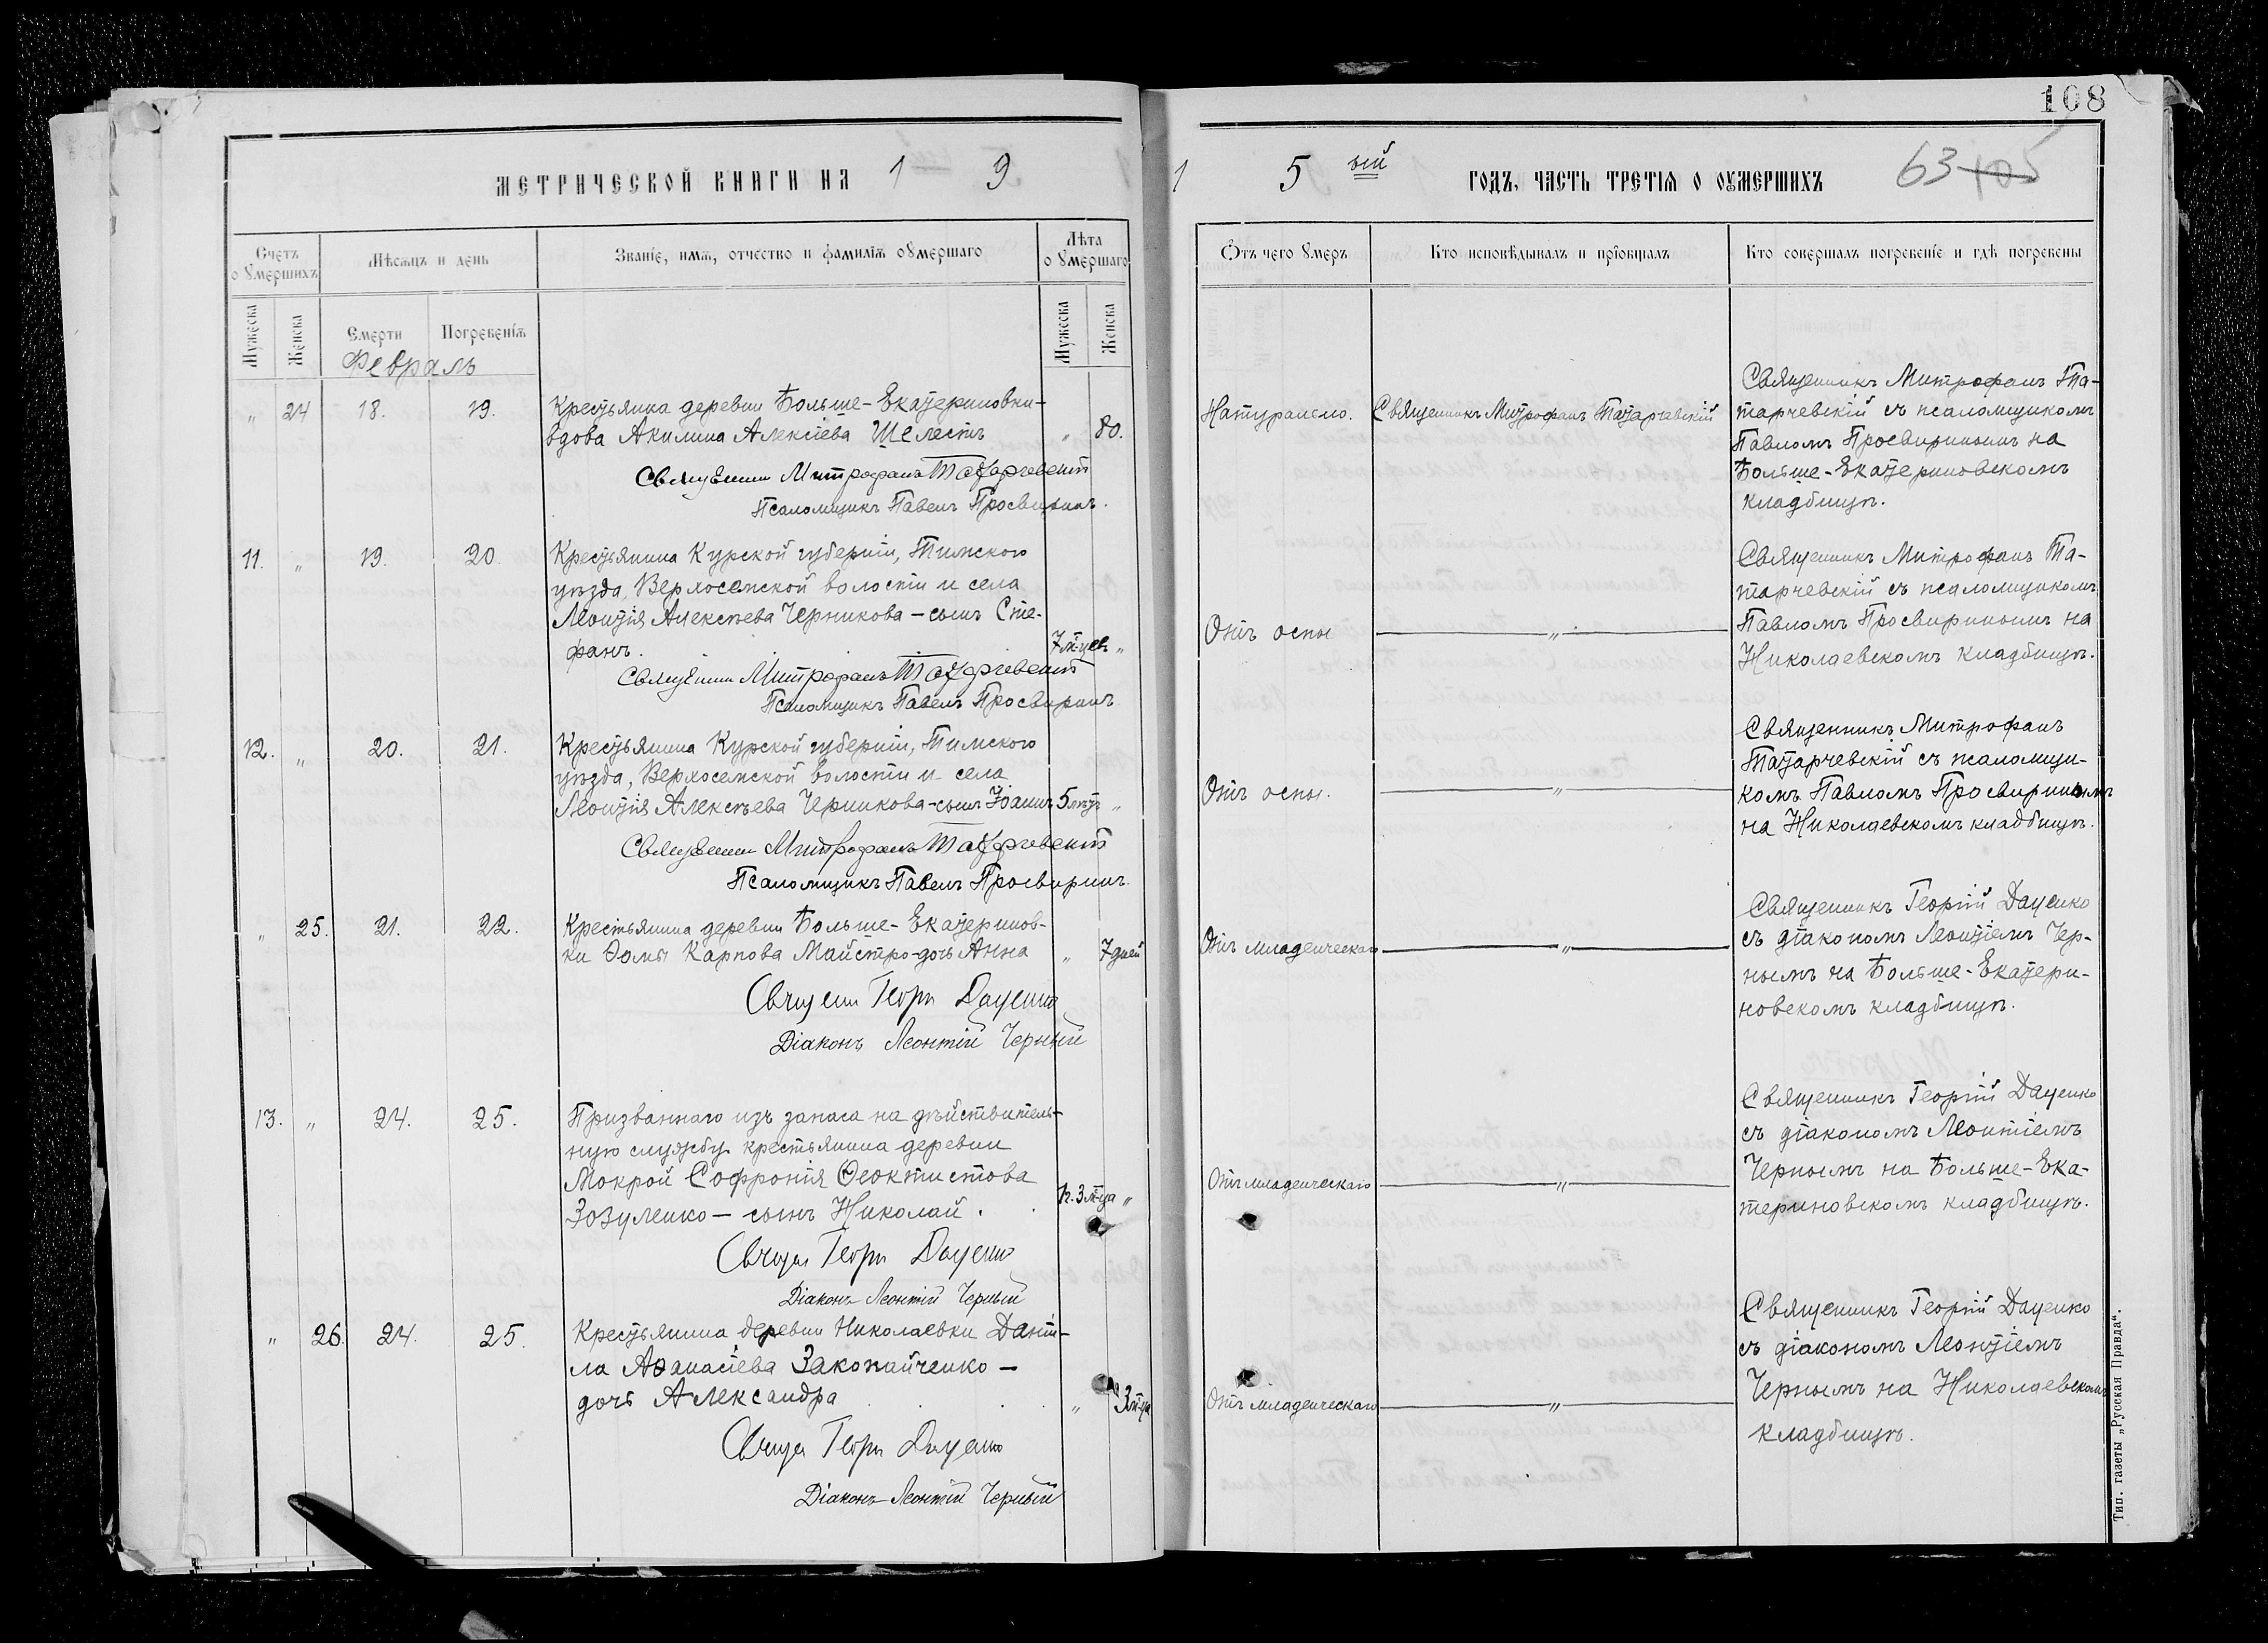 108
МЕТРИЧЕСКОЙ КНИГИ НА 1 9
1 5 ый ГОДЪ, ЧАСТЬ ТРЕТІѦ О ОУМЕРШИХЪ 63 105
Счетъ оумершихъ
Мѣсѧцъ и день
Званіе, имѧ, отчество и фамиліѧ оумершаго
Лѣта оумершаго
Отъ чего умеръ
Кто исповѣдывалъ и пріобщалъ
Кто совершалъ погребеніе и гдѣ погребены
Мужеска
Женска
Смерти
Погребеніѧ
Мужеска
Женска
Февраль
" 24 18. 19.
Крестьянка деревни Больше-Екатериновки-
вдова Акилина Алексіева Шелестъ " 80.
Священник Митрофанъ Татарчевскій
Псаломщикъ Павелъ Просвиринъ.
Натурально.
Священникъ Митрофанъ Татарчевскій
Священникъ Митрофанъ Та-
тарчевскій съ псаломщикомъ
Павломъ Просвиринымъ на
Больше-Екатериновскомъ
кладбищѣ.
11. " 19. 20.
Крестьянина Курской губерніи, Тимского
уѣзда, Верхосемской волости и села
Леонтія Алексѣева Черникова - сынъ Сте-
фанъ. 7 м-цевъ "
Священник Митрофанъ Татарчевскій
Псаломщикъ Павелъ Просвиринъ
Отъ оспы
"
Священникъ Митрофанъ Та-
тарчевскій съ псаломщикомъ
Павломъ Просвиринымъ на
Николаевскомъ кладбищѣ.
12. " 20. 21.
Крестьянина Курской губерніи, Тимского
уѣзда, Верхосемской волости и села
Леонтія Алексѣева Черникова-сынъ Іоаннъ 5 лѣтъ "
Священник Митрофанъ Татарчевскій
Псаломщикъ Павелъ Просвиринъ.
Отъ оспы.
"
Священникъ Митрофанъ
Татарчевскій съ псаломщи-
комъ Павломъ Просвиринымъ
на Николаевскомъ кладбищѣ.
" 25. 21. 22.
Крестьянина деревни Больше-Екатеринов-
ки Ѳомы Карпова Майстро-дочь Анна " 7 дней
Священ Георг Даценко
Діаконъ Леонтій Черный
Отъ младенческаго
"
Священникъ Георгій Даценко
съ діакономъ Леонтіемъ Чер-
нымъ на Больше-Екатери-
новскомъ кладбищѣ.
13. " 24. 25.
Призваннаго изъ запаса на дѣйствитель-
ную службу крестьянина деревни
Мокрой Софронія Ѳеоктистова
Зозуленко - сынъ Николай. 3 м-ца "
Свящ Георг Даценко
Діаконъ Леонтій Черный
Отъ младенческаго
"
Священникъ Георгій Даценко
съ діакономъ Леонтіемъ
Чернымъ на Больше-Ека-
териновскомъ кладбищѣ.
" 26. 24. 25.
Крестьянина деревни Николаевки Дані-
ла Аѳанасіева Закопайченко -
дочь Александра " 3 м-ца
Свящ Георг Даценко
Діаконъ Леонтій Черный
Отъ младенческаго
"
Священникъ Георгій Даценко
съ діакономъ Леонтіемъ
Чернымъ на Николаевскомъ
кладбищѣ.
Тип. газеты „Русская Правда“.